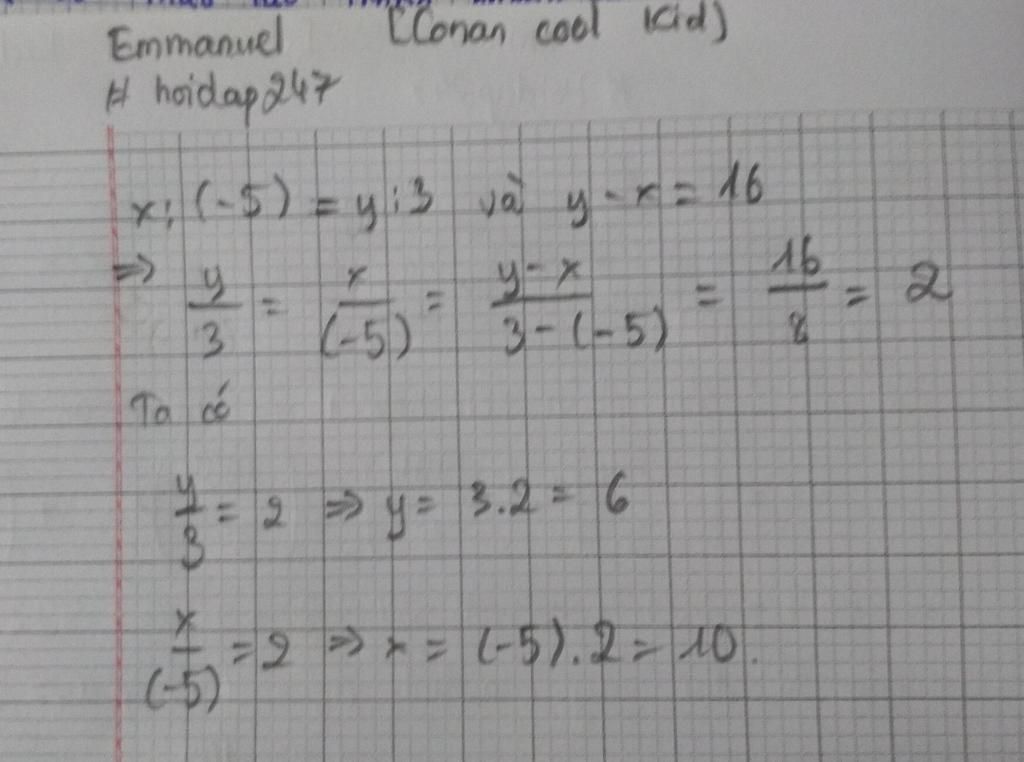 Emmanuel [Conan cool Kid]
# hoidap247
x : (-5) = y : 3 và y - x = 16
=> y/3 = x/(-5) = y - x/3 - (-5) = 16/8 = 2
Ta có
y/3 = 2 => y = 3.2 = 6
x/(-5) = 2 => x = (-5).2 = 10.